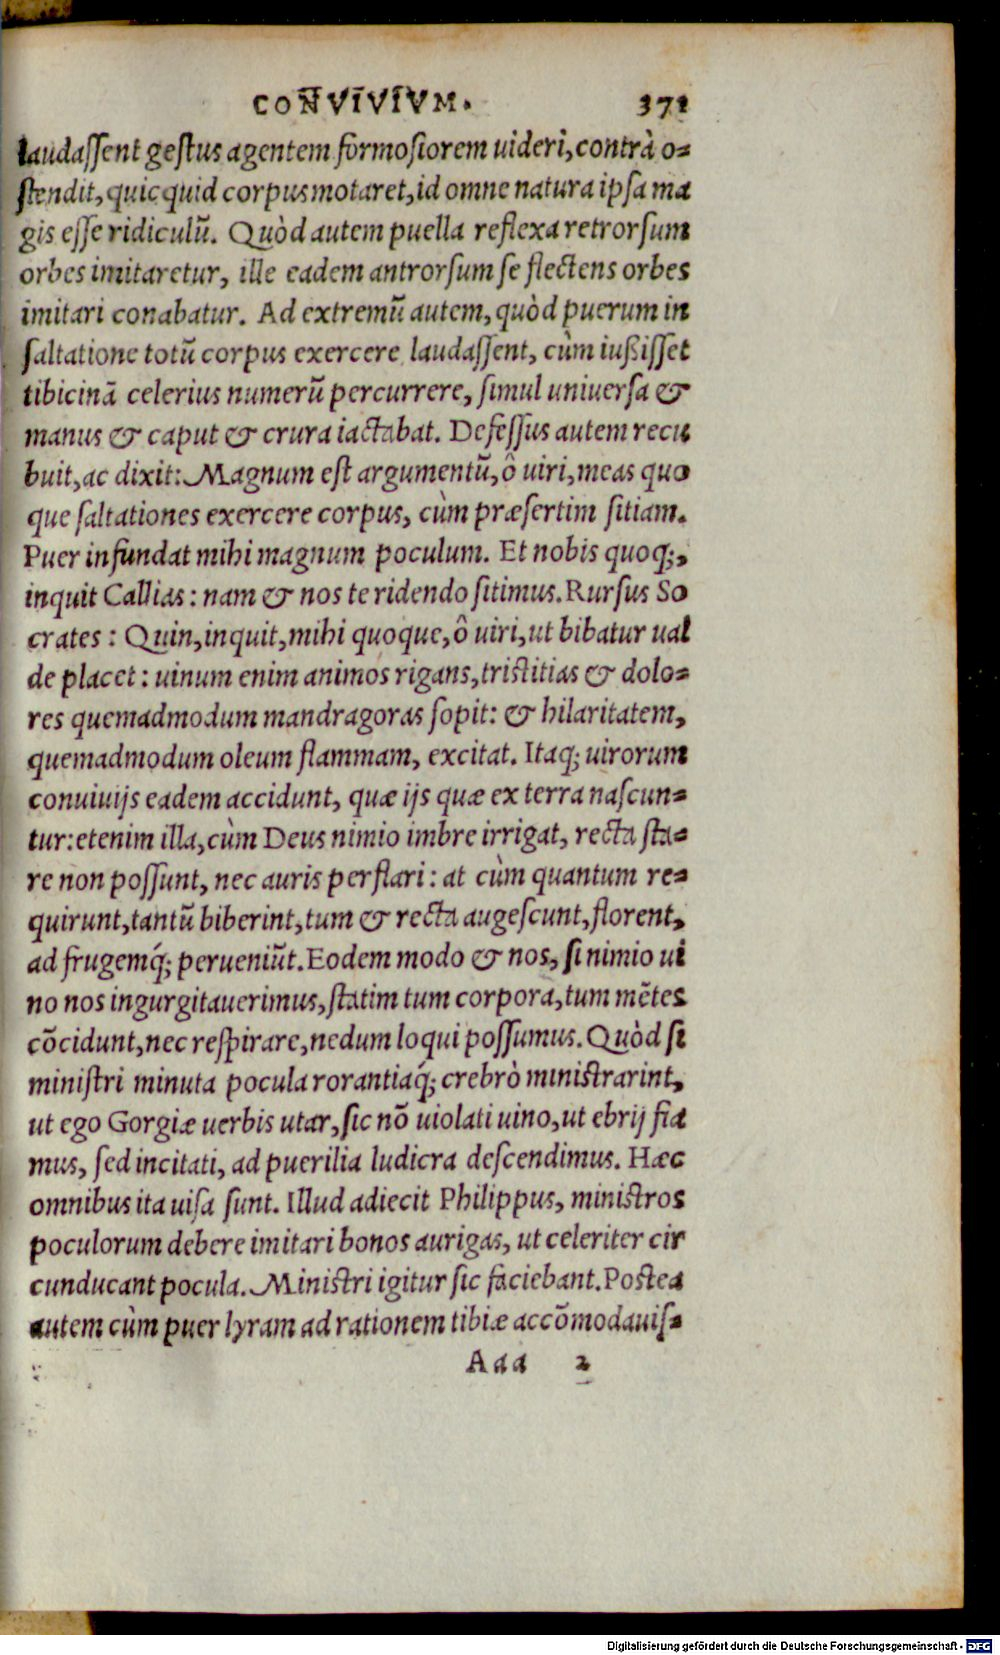 CONVIVIVM. 371
laudassent gestus agentem formosiorem uideri, contrà o-
stendit, quicquid corpus motaret, id omne natura ipsa ma
gis esse ridiculū. Quòd autem puella reflexa retrorsum
orbes imitaretur, ille eadem antrorsum se flectens orbes
imitari conabatur. Ad extremū autem, quòd puerum in
saltatione totū corpus exercere laudassent, cùm iußisset
tibicinā celerius numerū percurrere, simul uniuersa &
manus & caput & crura iactabat. Defessus autem recu
buit, ac dixit: Magnum est argumentū, ô uiri, meas quo
que saltationes exercere corpus, cùm præsertim sitiam.
Puer infundat mihi magnum poculum. Et nobis quoq;,
inquit Callias: nam & nos te ridendo sitimus. Rursus So
crates: Quin, inquit, mihi quoque, ô uiri, ut bibatur ual
de placet: uinum enim animos rigans, tristitias & dolo-
res quemadmodum mandragoras sopit: & hilaritatem,
quemadmodum oleum flammam, excitat. Itaq; uirorum
conuiuijs eadem accidunt, quæ ijs quæ ex terra nascun-
tur: etenim illa, cùm Deus nimio imbre irrigat, recta sta-
re non possunt, nec auris perflari: at cùm quantum re-
quirunt, tantū biberint, tum & recta augescunt, florent,
ad frugemq́; perueniūt. Eodem modo & nos, si nimio ui
no nos ingurgitauerimus, statim tum corpora, tum mētes
cōcidunt, nec respirare, nedum loqui possumus. Quòd si
ministri minuta pocula rorantiaq́; crebrò ministrarint,
ut ego Gorgiæ uerbis utar, sic nō uiolati uino, ut ebrij fia
mus, sed incitati, ad puerilia ludicra descendimus. Hæc
omnibus ita uisa sunt. Illud adiecit Philippus, ministros
poculorum debere imitari bonos aurigas, ut celeriter cir
cunducant pocula. Ministri igitur sic faciebant. Postea
autem cùm puer lyram ad rationem tibiæ accōmodauis-
Aaa 2
Digitalisierung gefördert durch die Deutsche Forschungsgemeinschaft - DFG